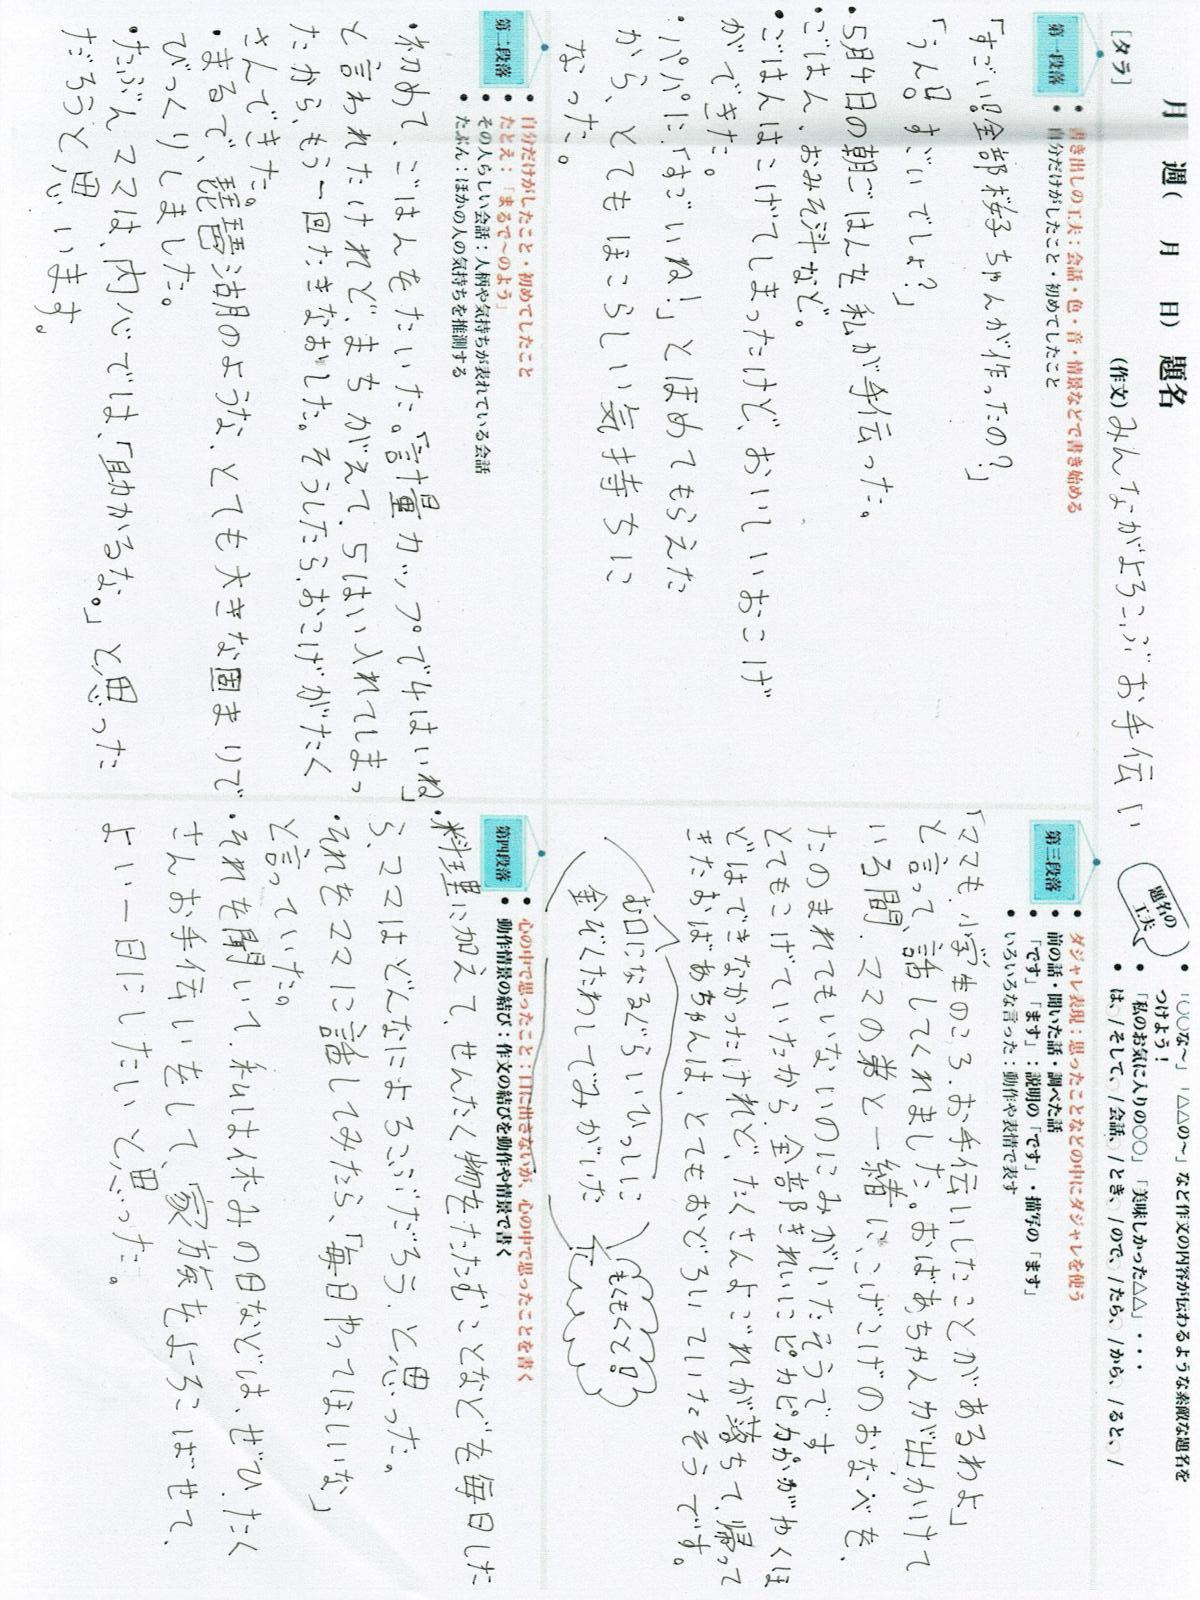 月 週( 月 日) 題名
[タラ] (作文) みんながよろこぶお手伝い
題名の工夫
• 「○○な～」「△△の～」など作文の内容が伝わるような素敵な題名を
つけよう！
• 「私のお気に入りの○○」「美味しかった△△」・・・
• は、○/そして、○/会話、○/とき、○/ので、○/たら、○/から、○/ると、○/
第一段落
• 書き出しの工夫：会話・色・音・情景などで書き始める
• 自分だけがしたこと・初めてしたこと
「すごい!!全部桜子ちゃんが作ったの?」
「うん!!すごいでしょ?」
• 5月4日の朝ごはんを私が手伝った。
• ごはん、おみそ汁など。
• ごはんはこげてしまったけど、おいしいおこげ
ができた。
• パパに「すごいね!」とほめてもらえた
から、とてもほこらしい気持ちに
なった。
第二段落
• 自分だけがしたこと・初めてしたこと
• たとえ：「まるで～のよう」
• その人らしい会話：人柄や気持ちが表れている会話
• たぶん：ほかの人の気持ちを推測する
• 初めて、ごはんをたいた。「計量カップで4はいね」
と言われたけれど、まちがえて、5はい入れてしまっ
たから、もう一回たきなおした。そうしたら、おこげがたく
さんできた。
• まるで、琵琶湖のような、とても大きな固まりで
びっくりしました。
• たぶんママは、内心では、「助かるな。」と思った
だろうと思います。
第三段落
• ダジャレ表現：思ったことなどの中にダジャレを使う
• 前の話・聞いた話・調べた話
• 「です」「ます」：説明の「です」・描写の「ます」
• いろいろな言った：動作や表情で表す
「ママも、小学生のころ、お手伝いしたことがあるわよ」
と言って、話してくれました。おばあちゃんが出かけて
いる間、ママの弟と一緒に、こげこげのおなべを、
たのまれてもいないのにみがいたそうです
とてもこげていたから、全部きれいにピカピカかがやくほ
どはできなかったけれど、たくさんよごれが落ちて、帰って
きたおばあちゃんは、とてもおどろいていたそうです。
お口になるぐらいひっしに
金ぞくたわしでみがいた
もくもくと!!
第四段落
• 心の中で思ったこと：口に出さないが、心の中で思ったことを書く
• 動作情景の結び：作文の結びを動作や情景で書く
• 料理に加えて、せんたく物をたたむことなどを毎日した
ら、ママはどんなによろこぶだろう、と思った。
• それをママに話してみたら、「毎日やってほしいな」
と言っていた。
• それを聞いて、私は休みの日などは、ぜひ、たく
さんお手伝いをして、家族をよろこばせて、
よい一日にしたいと思った。